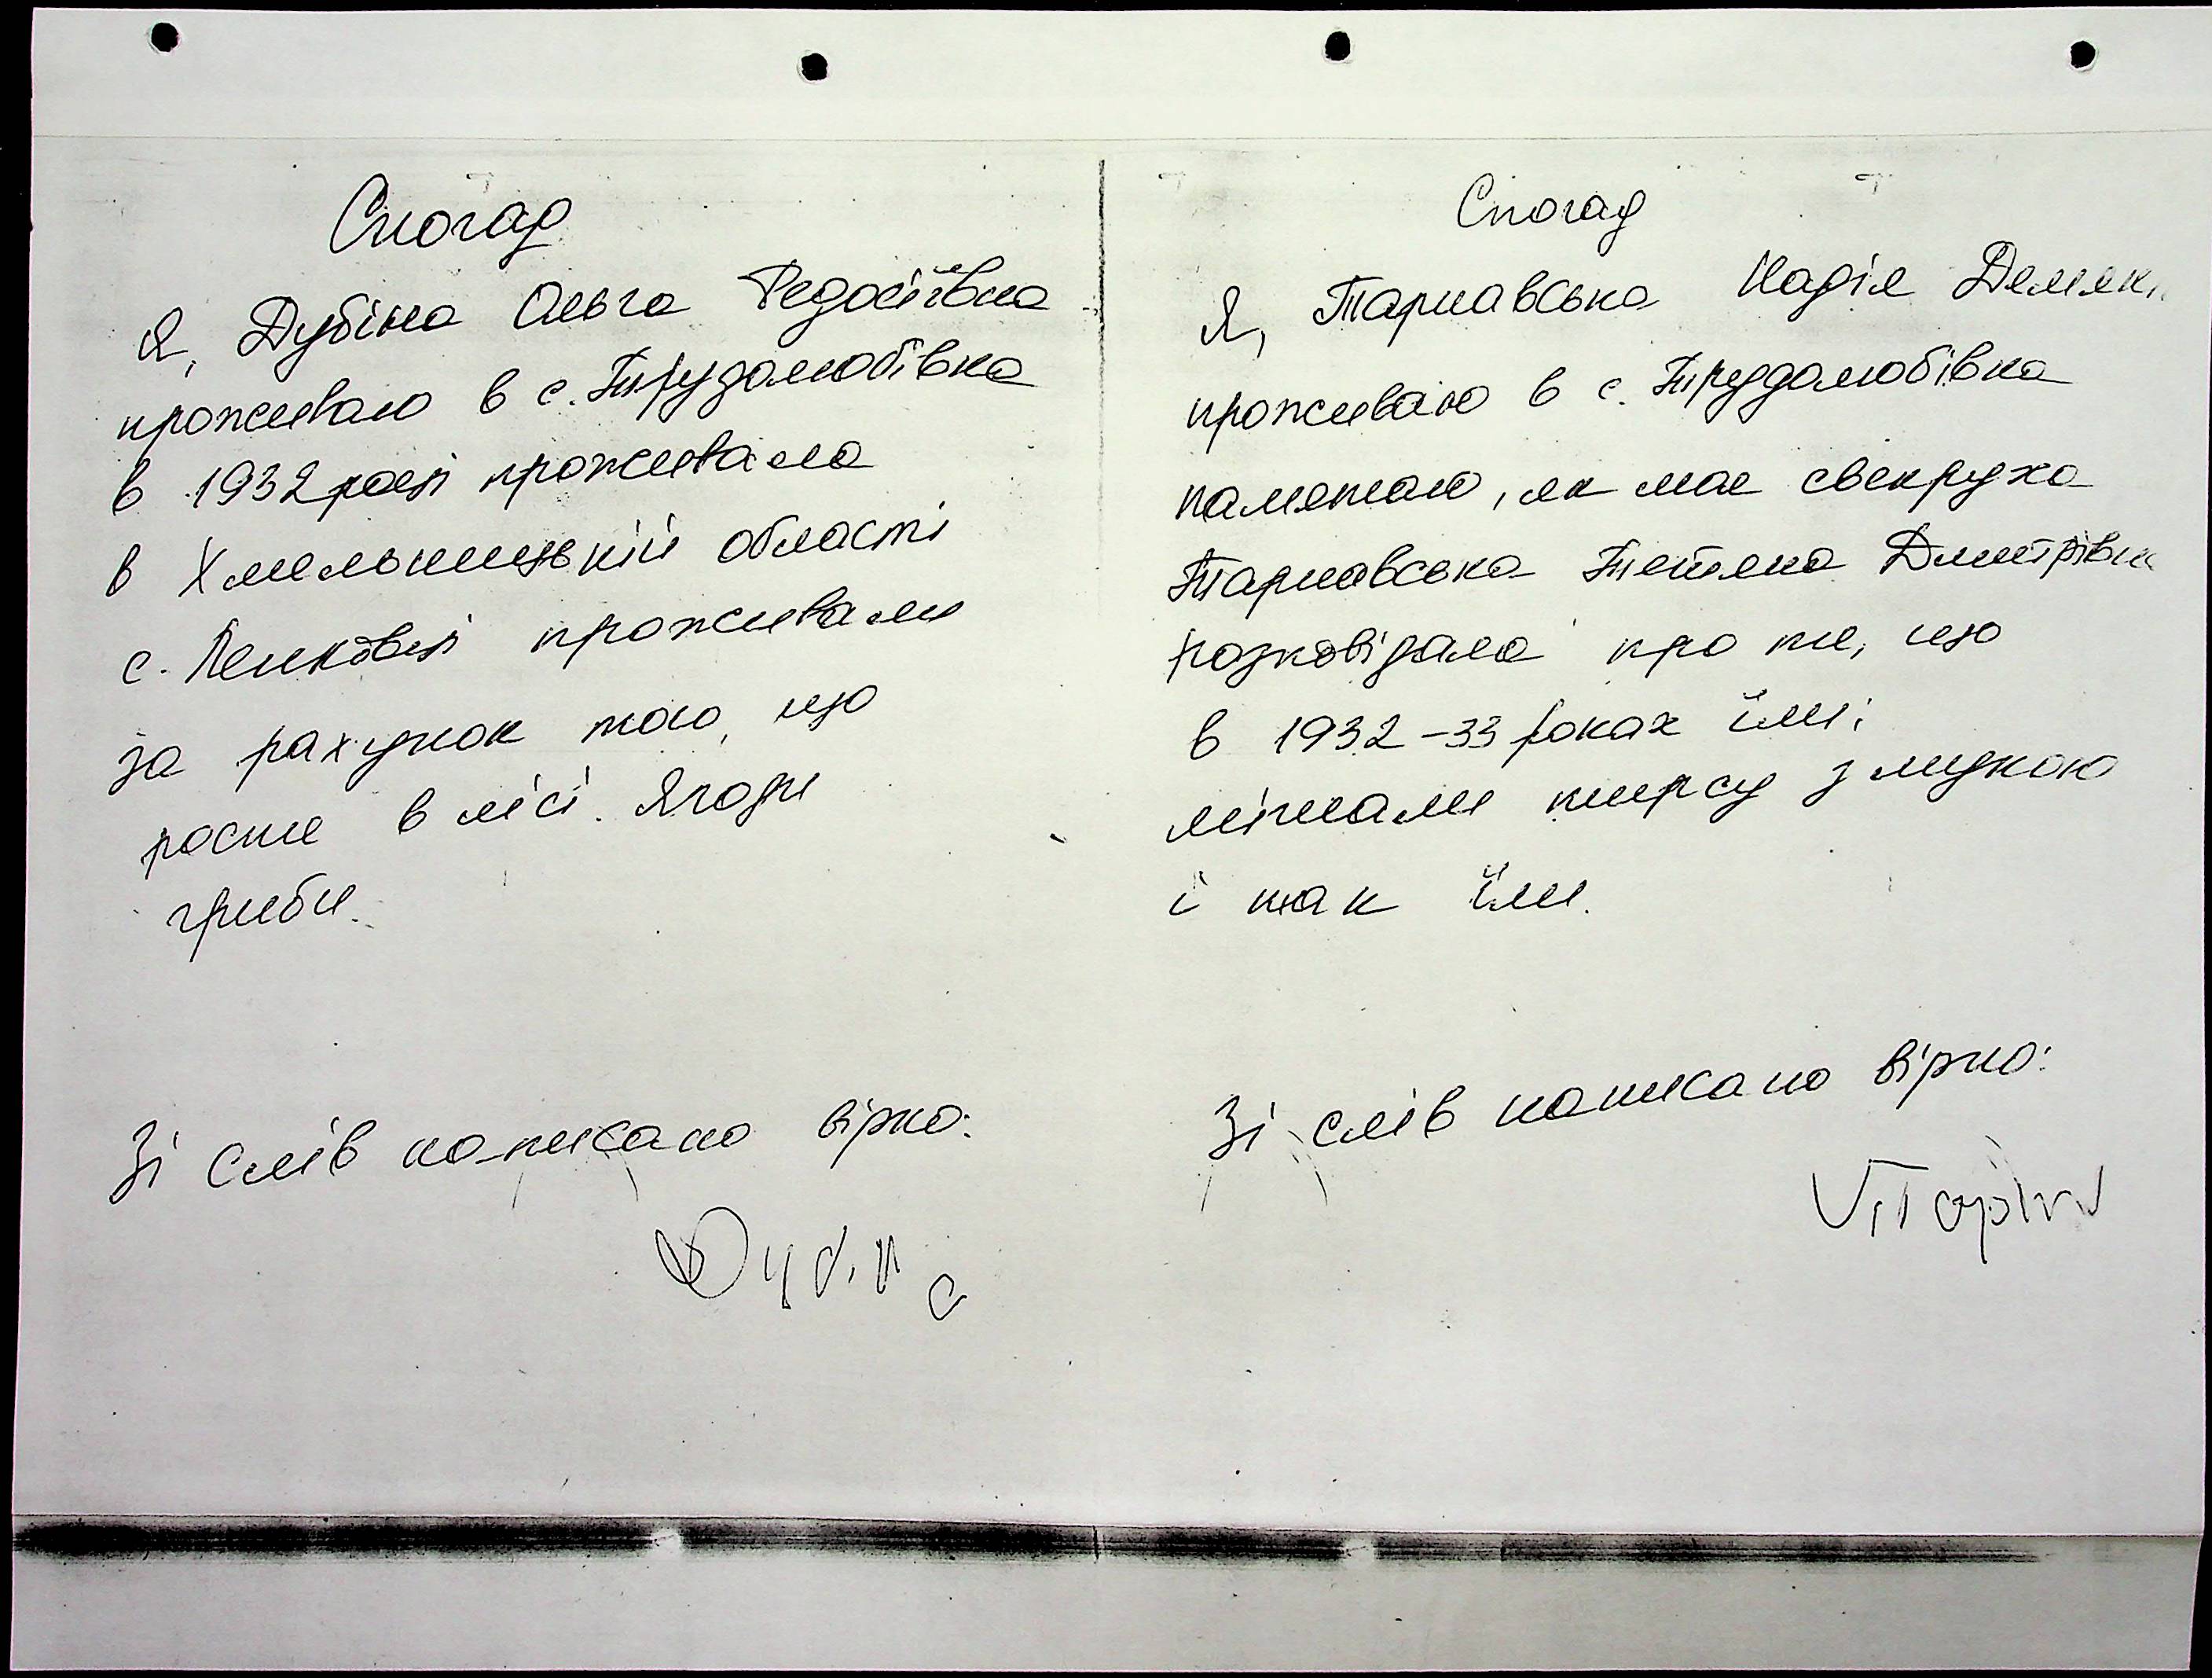 Спогад
Я, Дубіна Ольга Федосіївна
проживаю в с. Трудолюбівка
в 1932 році проживала
в Хмельницькій області
с. проживали
за рахунок того, що
росте в лісі. Ягоди
гриби.
Зі слів написано вірно:
Дубіна
Спогад
Я, Тарнавська Надія
проживаю в с. Трудолюбівка
памятаю, як моя свекруха
Тарнавська Тетяна Дмитрівна
розповідала про те, що
в 1932-33 роках їли;
мішали кирсу з мукою
і так їли.
Зі слів написано вірно: